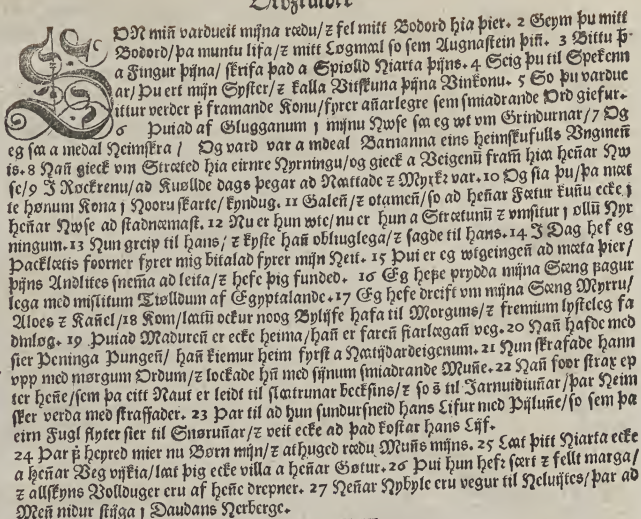 SOn min̄ vardueit mijna rædu/ ꝛ fel mitt Bodord hia þier. 2 Geym þu mitt
Bodord/ þa muntu lifa/ ꝛ mitt Løgmæl so sem Augnastein þin̄. 3 Bittu þ
a Fingur þijna/ skrifa þad a Spiølld Hiarta þijns. 4 Seig þu til Spekenn
ar/ Þu ert mijn Syster/ ꝛ kalla Vitskuna þijna Vinkonu. 5 So þu varduc
ittur verder þ framande Konu/ fyrer an̄arlegre sem smiadrande Ord giefur.
6 Þuiad af Glugganum j mijnu Hwse sæ eg wt vm Grindurnar/ 7 Og
eg sæ a medal Heimskra / Og vard var a mdeal Barnanna eins heimskufulls Vngmen̄
is. 8 Han̄ gieck vm Stræted hia eirnre Hyrningu/ og gieck a Veigenū fram̄ hia hen̄ar Hw
se/ 9 J Røckrenu/ ad Kuøllde dags þegar ad Nættade ꝛ Myrkꝛ var. 10 Og sia þu/ þa mæt
te hønum Kona j Hooru skarte/ kyndug. 11 Galen̄/ ꝛ otamen̄/ so ad hen̄ar Fætur kun̄u ecke j
hen̄ar Hwse ad stadnæmast. 12 Nu er hun wte/ nu er hun a Strætunū ꝛ vmsitur j ollū Hyr
ningum. 13 Hun greip til hans/ ꝛ kyste han̄ obluglega/ ꝛ sagde til hans. 14 J Dag hef eg
Packlætis foorner fyrer mig bitalad fyrer mijn Heit. 15 Þui er eg wtgeingen̄ ad mæta þier/
þijns Andlites snem̄a ad leita/ ꝛ hefe þig funded. 16 Eg hefe prydda mijna Sæng þagur
lega med mislitum Tiølldum af Egyptalande. 17 Eg hefe dreift vm mijna Sæng Myrru/
Aloes ꝛ Kan̄el/ 18 Kom/ lætū ockur noog Bylijfe hafa til Morguns/ ꝛ fremium lysteleg fa
dmløg. 19 Þuiad Maduren̄ er ecke heima/ han̄ er faren̄ fiarlægan̄ veg. 20 Han̄ hafde med
sier Peninga Pungen̄/ han̄ kiemur heim fyrst a Hætijdardeigenum. 21 Hun skrafade hann
vpp med mørgum Ordum/ ꝛ lockade hn̄ med sijnum smiadrande Mun̄e. 22 Han̄ foor strax ep
ter hen̄e/ sem þa eitt Naut er leidt til slætrunar becksins/ ꝛ so s̄ til Jarnuidiun̄ar/ þar Heim
sker verda med straffader. 23 Þar til ad hun sundursneid hans Lifur med Pijlun̄e/ so sem þa
eirn Fugl flyter sier til Snørun̄ar/ ꝛ veit ecke ad þad kostar hans Lijf.
24 Þar þ heyred mier nu Børn mijn/ ꝛ athuged rædu Mun̄s mijns. 25 Læt þitt Hiarta ecke
a hen̄ar Veg vijkia/ læt þig ecke villa a hen̄ar Gøtur. 26 Þui hun hefꝛ sært ꝛ fellt marga/
ꝛ allskyns Volldouger eru af hen̄e drepner. 27 Hen̄ar Hybyle eru vegur til Heluijtes/ þar ad
Men̄ nidur stijga j Daudans Herberge.